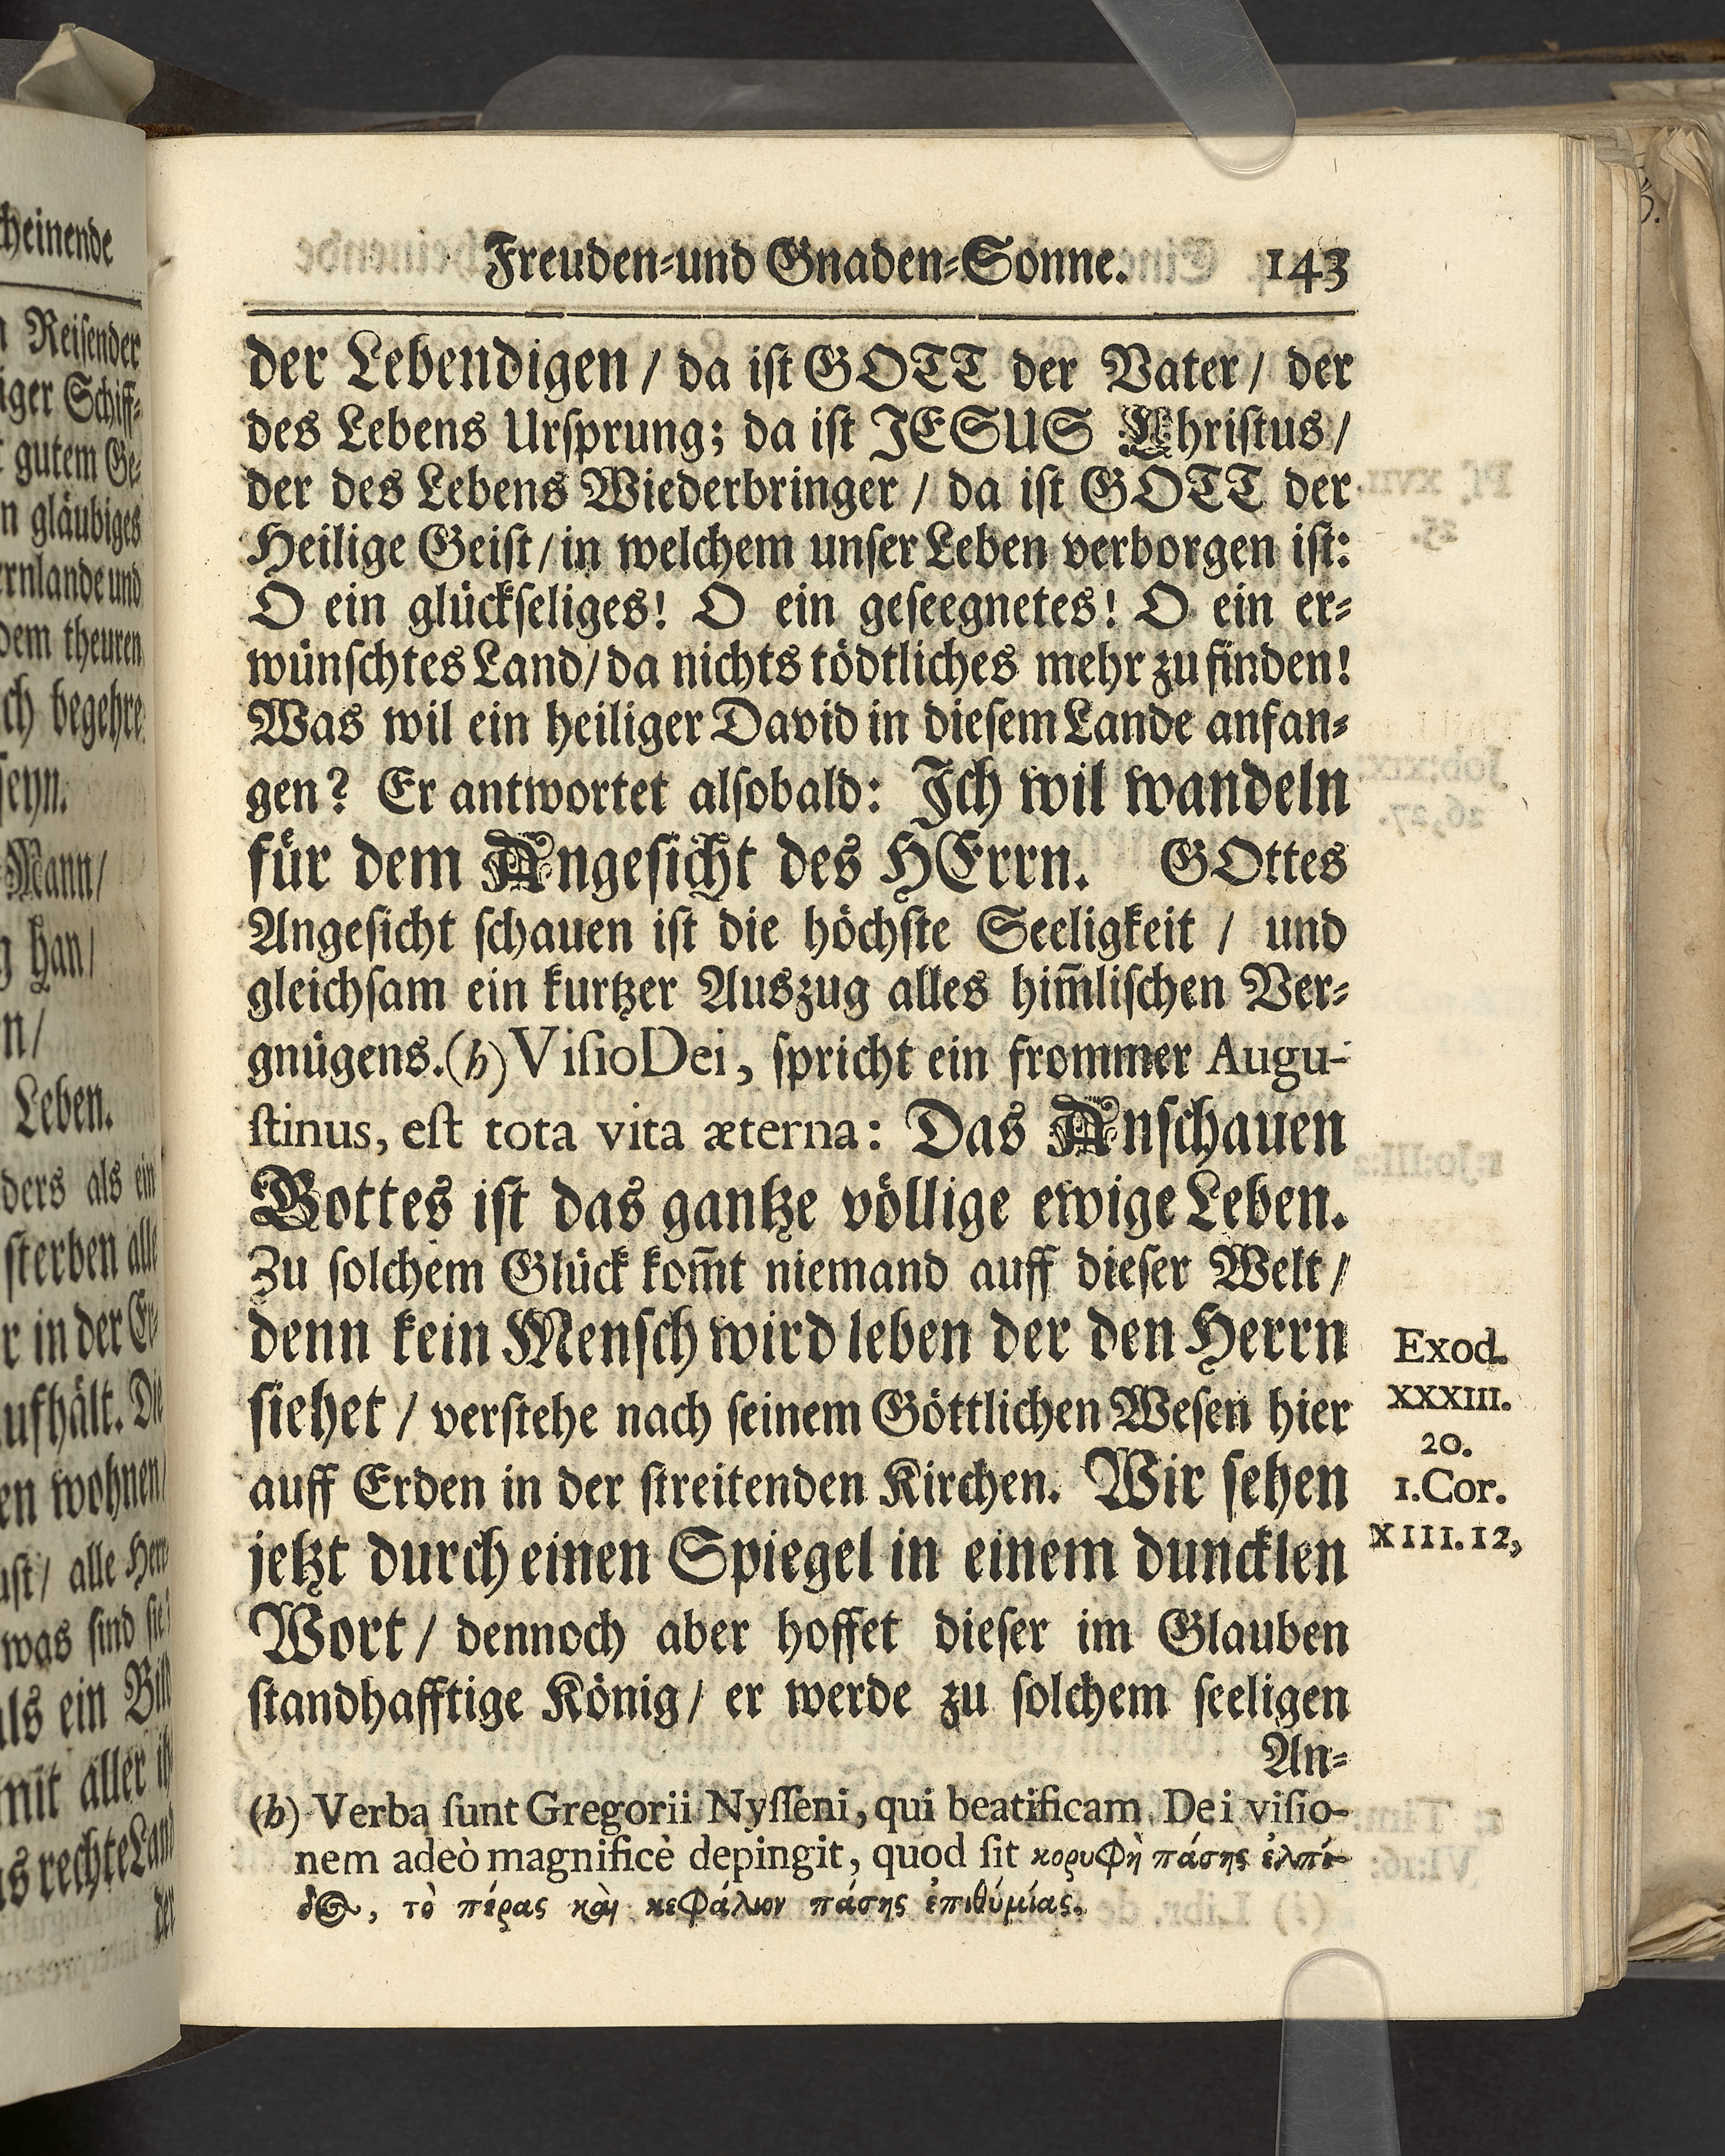 Freuden-und Gnaden-Sonne. 143
der Lebendigen / da ist GOTT der Vater / der
des Lebens Ursprung; da ist JESUS Christus /
der des Lebens Wiederbringer / da ist GOTT der
Heilige Geist / in welchem unser Leben verborgen ist:
O ein glückseliges! O ein geseegnetes! O ein er-
wünschtes Land / da nichts tödtliches mehr zu finden!
Was wil ein heiliger David in diesem Lande anfan-
gen? Er antwortet alsobald: Ich wil wandeln
für dem Angesicht des HErrn. GOttes
Angesicht schauen ist die höchste Seeligkeit / und
gleichsam ein kurtzer Auszug alles him̃lischen Ver-
gnügens. (h) Visio Dei, spricht ein frommer Augu-
stinus, est tota vita æterna: Das Anschauen
Gottes ist das gantze völlige ewige Leben.
Zu solchem Glück kom̃t niemand auff dieser Welt /
denn kein Mensch wird leben der den Herrn
siehet / verstehe nach seinem Göttlichen Wesen hier
auff Erden in der streitenden Kirchen. Wir sehen
jetzt durch einen Spiegel in einem duncklen
Wort / dennoch aber hoffet dieser im Glauben
standhafftige König / er werde zu solchem seeligen
An-
Exod.
XXXIII.
20.
1. Cor.
XIII. 12,
(h) Verba sunt Gregorii Nysseni, qui beatificam Dei visio-
nem adeò magnificè depingit, quod sit κορυφὴ πάσης ἐλπί-
δος, τὸ πέρας καὶ κεφάλιον πάσης ἐπιθύμίας.
cheinende
Reisender
iger Schiff-
gutem Ge-
n gläubiges
ernlande und
dem theuren
ch begehre
seyn.
Mann /
han /
n /
Leben.
ders als ein
sterben alle
r in der Er-
ufhält. Die
en wohnen /
ust / alle
was sind sie?
als ein Bild
mit aller
as rechte Land
der